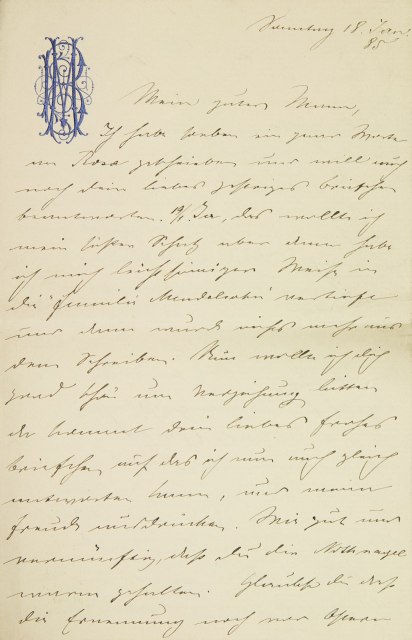 Sonntag 18. Jan.
85
Mein guter Mann,
Ich habe soeben ein paar Worte
an Rosa geschrieben und will auch
noch dein liebes gestriges briefchen
beantworten. Ja, das wollte ich
mein süßer Schatz aber dann habe
ich mich leichtsinniger Weise in
die "Familie Mendelsohn" vertieft
und dann wurde nichts mehr aus
dem Schreiben. Nun wollte ich dich
grad um Verzeihung bitten
da kommt dein liebes frohes
briefchen auf das ich nun auch gleich
antworten kann, und meine
Freude ausdrücken. Wie gut und
vernünftig, daß du die Nothnagel
gehalten. Glaubst du daß
die Ernennung noch vor Ostern